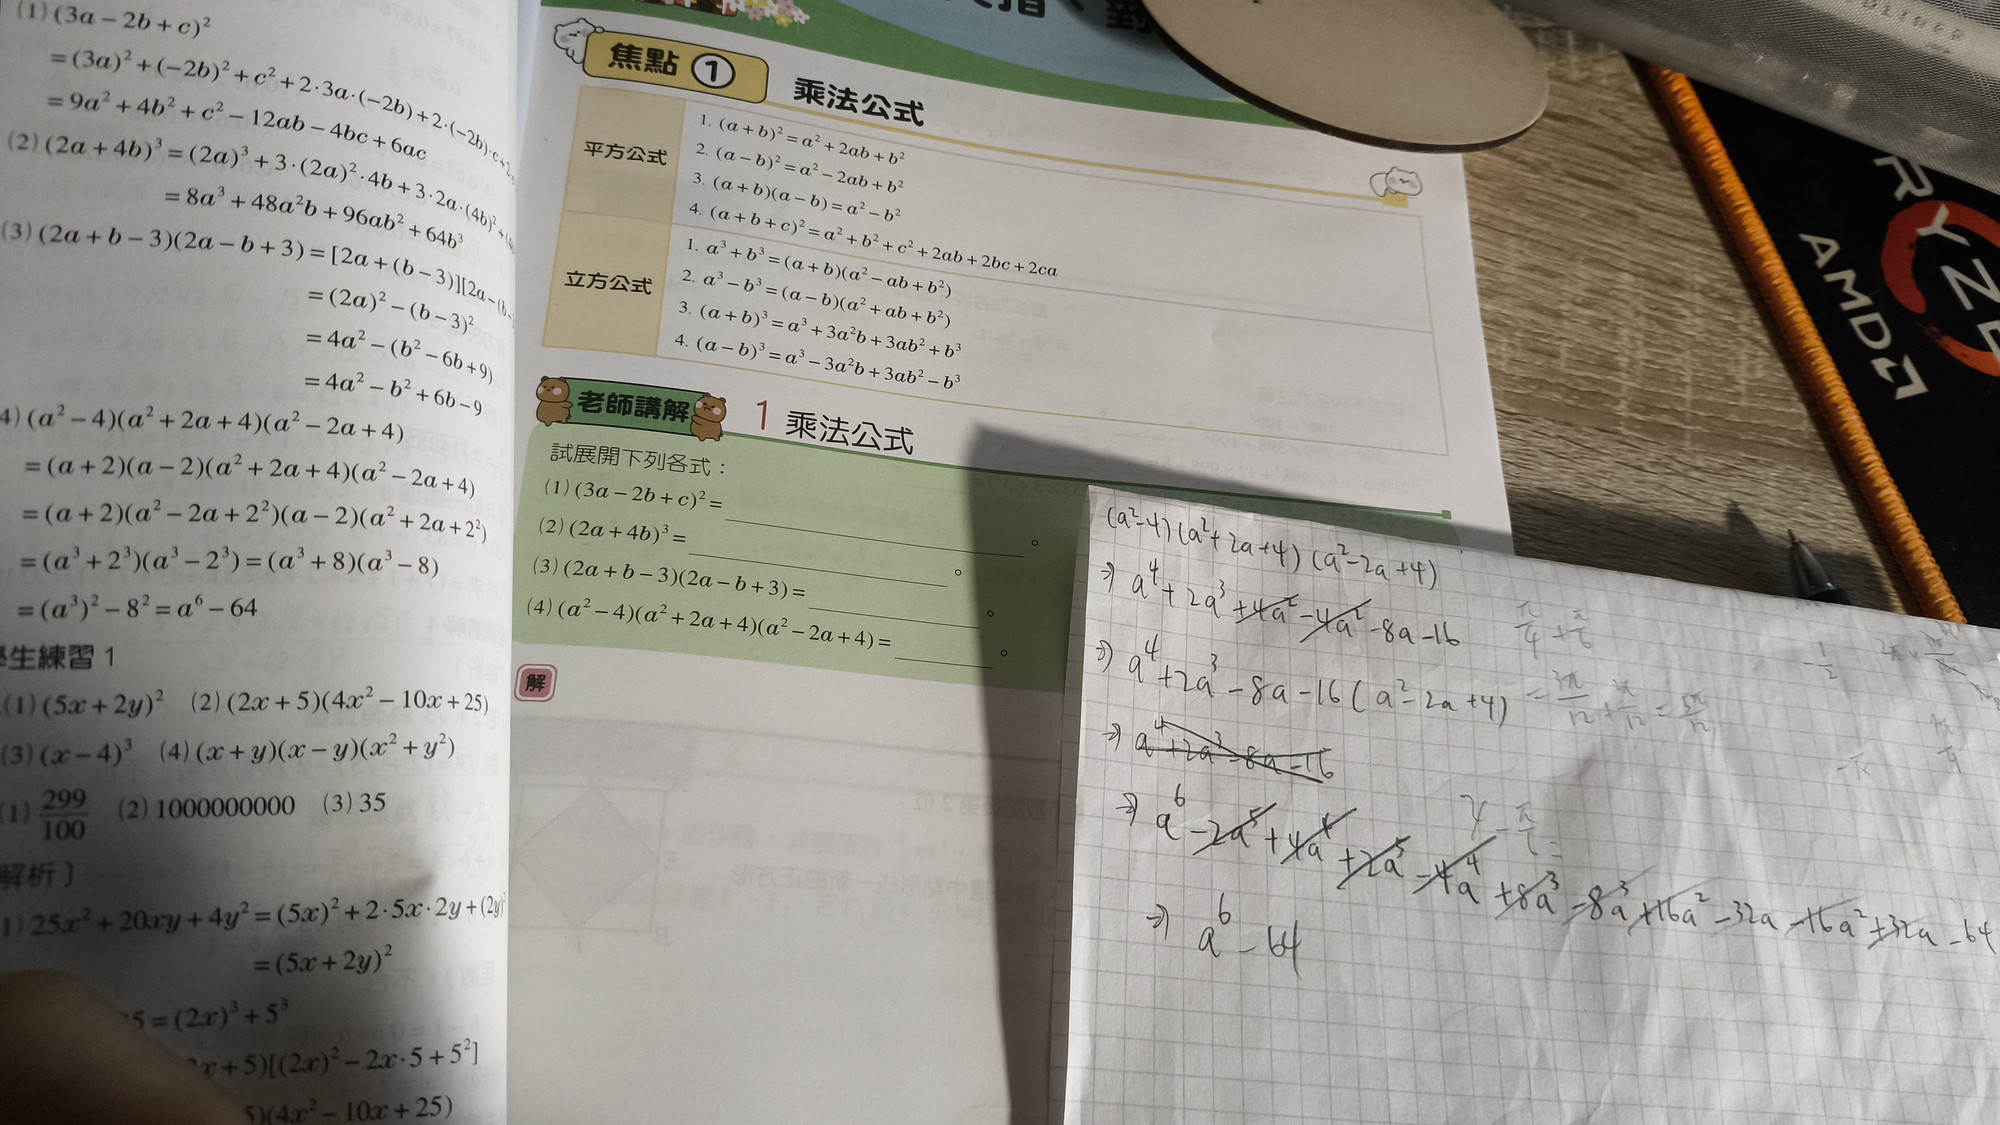 (1) (3a − 2b + c)²
= (3a)² + (−2b)² + c² + 2·3a·(−2b) + 2·(−2b)·c +
= 9a² + 4b² + c² − 12ab − 4bc + 6ac
(2) (2a + 4b)³ = (2a)³ + 3·(2a)²·4b + 3·2a·(4b)² +
= 8a³ + 48a²b + 96ab² + 64b³
(3) (2a + b − 3)(2a − b + 3) = [2a + (b − 3)][2a − (b −
= (2a)² − (b − 3)²
= 4a² − (b² − 6b + 9)
= 4a² − b² + 6b − 9
4) (a² − 4)(a² + 2a + 4)(a² − 2a + 4)
= (a + 2)(a − 2)(a² + 2a + 4)(a² − 2a + 4)
= (a + 2)(a² − 2a + 2²)(a − 2)(a² + 2a + 2²)
= (a³ + 2³)(a³ − 2³) = (a³ + 8)(a³ − 8)
= (a³)² − 8² = a⁶ − 64
學生練習 1
(1) (5x + 2y)² (2) (2x + 5)(4x² − 10x + 25)
(3) (x − 4)³ (4) (x + y)(x − y)(x² + y²)
(1) 299/100 (2) 1000000000 (3) 35
解析〕
1) 25x² + 20xy + 4y² = (5x)² + 2·5x·2y + (2y)²
= (5x + 2y)²
5 = (2x)³ + 5³
x + 5)[(2x)² − 2x·5 + 5²]
5)(4x² − 10x + 25)
焦點 ① 乘法公式
平方公式
1. (a + b)² = a² + 2ab + b²
2. (a − b)² = a² − 2ab + b²
3. (a + b)(a − b) = a² − b²
4. (a + b + c)² = a² + b² + c² + 2ab + 2bc + 2ca
立方公式
1. a³ + b³ = (a + b)(a² − ab + b²)
2. a³ − b³ = (a − b)(a² + ab + b²)
3. (a + b)³ = a³ + 3a²b + 3ab² + b³
4. (a − b)³ = a³ − 3a²b + 3ab² − b³
老師講解 1 乘法公式
試展開下列各式：
(1) (3a − 2b + c)² = ＿＿＿＿。
(2) (2a + 4b)³ = ＿＿＿＿。
(3) (2a + b − 3)(2a − b + 3) = ＿＿＿＿。
(4) (a² − 4)(a² + 2a + 4)(a² − 2a + 4) = ＿＿＿＿。
解
(a²−4)(a²+2a+4)(a²−2a+4)
⇒ a⁴+2a³+4a²−4a²−8a−16
⇒ a⁴+2a³−8a−16(a²−2a+4)
⇒ a⁴+2a³−8a−16
⇒ a⁶−2a⁵+4a⁴+2a⁵−4a⁴+8a³−8a³+16a²−32a−16a²+32a−64
⇒ a⁶−64
π/4 + π/6
= 3π/12 + 2π/12 = 5π/12
−1/2
RYZE
AMD